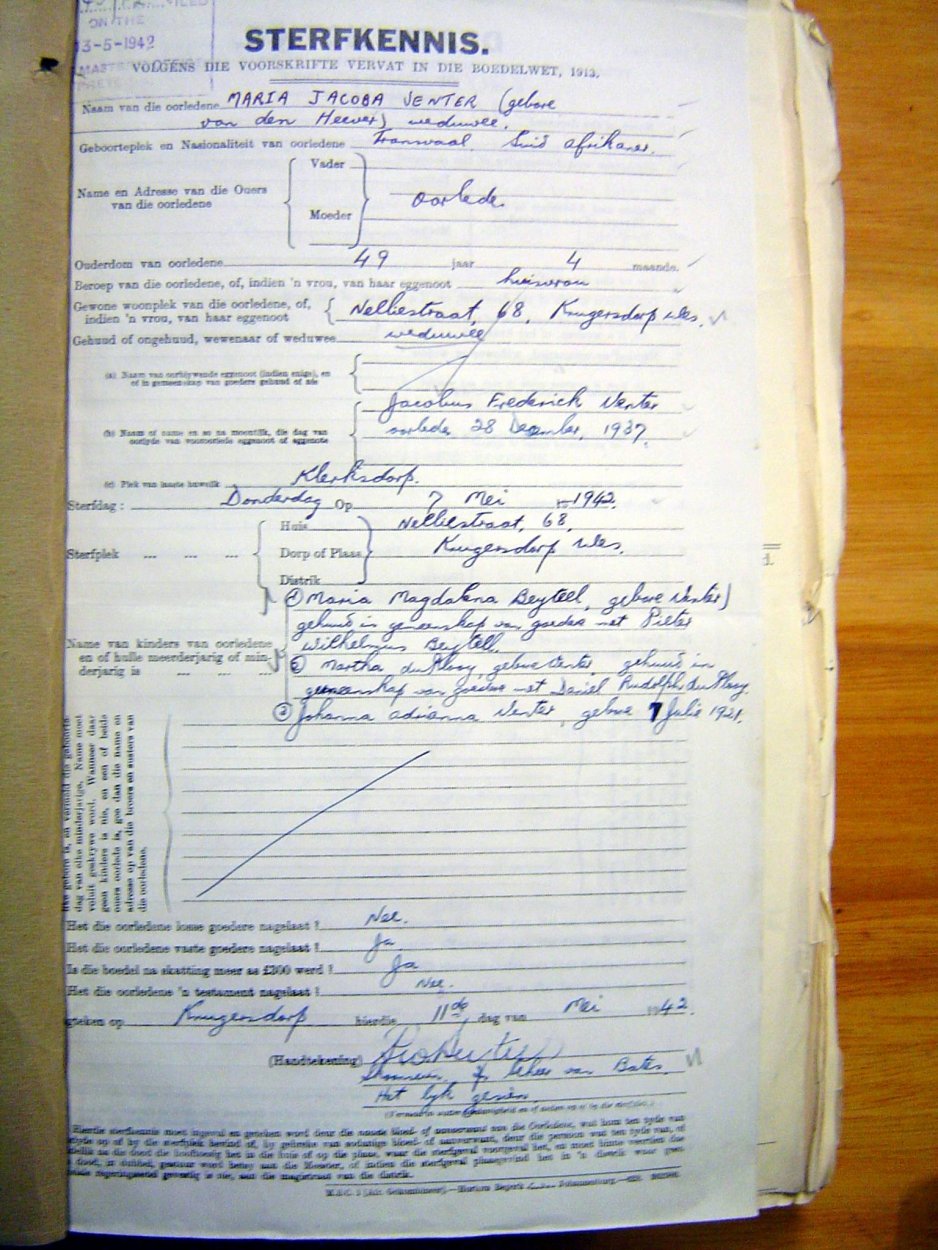 FILED
ON THE
13-5-1942
MASTER
STERFKENNIS.
VOLGENS DIE VOORSKRIFTE VERVAT IN DIE BOEDELWET, 1913.
Naam van die oorledene MARIA JACOBA VENTER (gebore
van den Heever) weduwee.
Geboorteplek en Nasionaliteit van oorledene Transvaal Suid afrikaner.
Vader
Name en Adresse van die Ouers van die oorledene oorlede.
Moeder
Ouderdom van oorledene 49 jaar 4 maande.
Beroep van die oorledene, of, indien 'n vrou, van haar eggenoot huisvrou
Gewone woonplek van die oorledene, of, indien 'n vrou, van haar eggenoot Nelliestraat, 68, Krugersdorp Wes.
Gehuud of ongehuud, wewenaar of weduwee weduwee
(a) Naam van oorblywende eggenoot (indien enige), en of in gemeenskap van goedere gehuud of nie
Jacobus Frederick Venter
(b) Naam of name en so na moontlik, die dag van oorlyde van vooroorlede eggenoot of eggenote oorlede 28 Desember, 1937.
(c) Plek van laaste huwelik Klerksdorp.
Sterfdag: Donderdag Op 7 Mei 1942.
Huis Nelliestraat, 68,
Sterfplek ... ... ... Dorp of Plaas Krugersdorp Wes.
Distrik
(1) Maria Magdalena Beytell, gebore Venter)
gehuud in gemeenskap van goedere met Pieter
Name van kinders van oorledene en of hulle meerderjarig of minderjarig is ... ... ... Wilhelmus Beytell.
(2) Martha du Plooy, gebore Venter, gehuud in
gemeenskap van goedere met Daniel Rudolph du Plooy.
(3) Johanna Adrianna Venter, gebore 7 Julie 1921.
dag van elke minderjarige. Name moet
voluit geskrywe word. Wanneer daar
geen kinders is nie, en een of beide
ouers oorlede is, gee dan die name en
adresse op van die broers en susters van
die oorledene.
Het die oorledene losse goedere nagelaat? Nee.
Het die oorledene vaste goedere nagelaat? Ja
Is die boedel na skatting meer as £300 werd? Ja
Het die oorledene 'n testament nagelaat? Nee.
geteken op Krugersdorp hierdie 11de dag van Mei 1942.
(Handtekening)
Het lyk gesien.